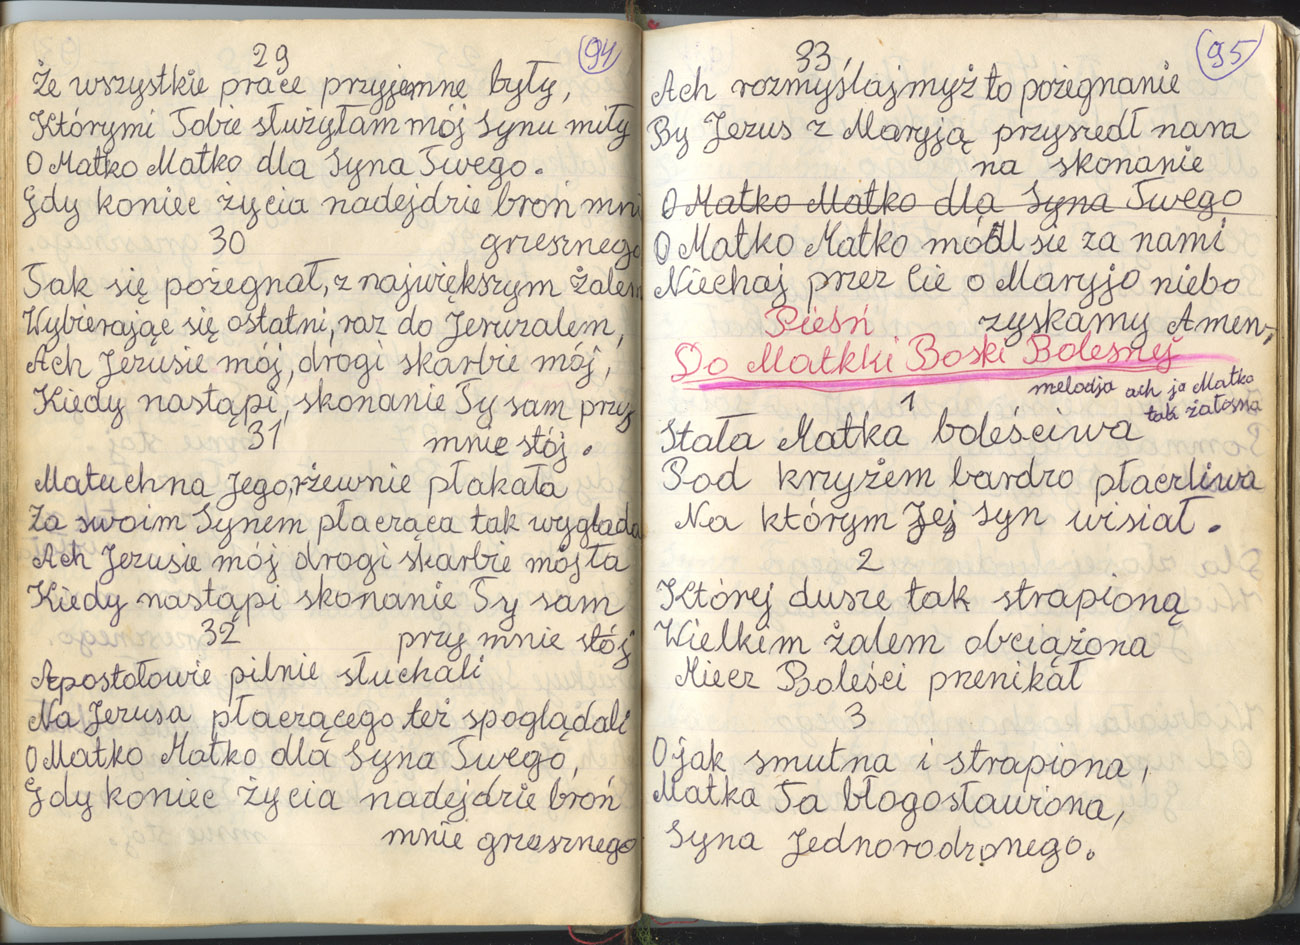 94
29
Że wszystkie prace przyjemne były,
Którymi Tobie służyłam mój Synu miły
O Matko Matko dla Syna Twego.
Gdy koniec życia nadejdzie broń mni
grzesznego
30
Tak się pożegnał, z największym żalem
Wybierając się ostatni, raz do Jeruzalem,
Ach Jezusie mój, drogi skarbie mój,
Kiedy nastąpi, skonanie Ty sam przy
mnie stój.
31
Matuchna Jego, rzewnie płakała
Za swoim Synem płacząca tak wygląda
ła
Ach Jezusie mój drogi skarbie mój
Kiedy nastąpi skonanie Ty sam
przy mnie stój
32
Apostołowie pilnie słuchali
Na Jezusa płaczącego też spoglądali
O Matko Matko dla Syna Twego,
Gdy koniec życia nadejdzie broń
mnie grzesznego
95
33
Ach rozmyślajmyż to pożegnanie
By Jezus z Maryją przyszedł nara
na skonanie
O Matko Matko dla Syna Twego
O Matko Matko módl sie za nami
Niechaj przez Cie o Maryjo niebo
zyskamy Amen,
Pieśń
Do Matkki Boski Bolesnej
melodja ach ja Matko
tak żałosna
1
Stała Matka boleściwa
Pod krzyżem bardzo płaczliwa
Na którym Jej Syn wisiał.
2
Której dusze tak strapioną
Wielkim żalem obciążona
Miecz Boleści przenikał
3
O jak smutna i strapiona,
Matka Ta błogosławiona,
Syna Jednorodzonego.